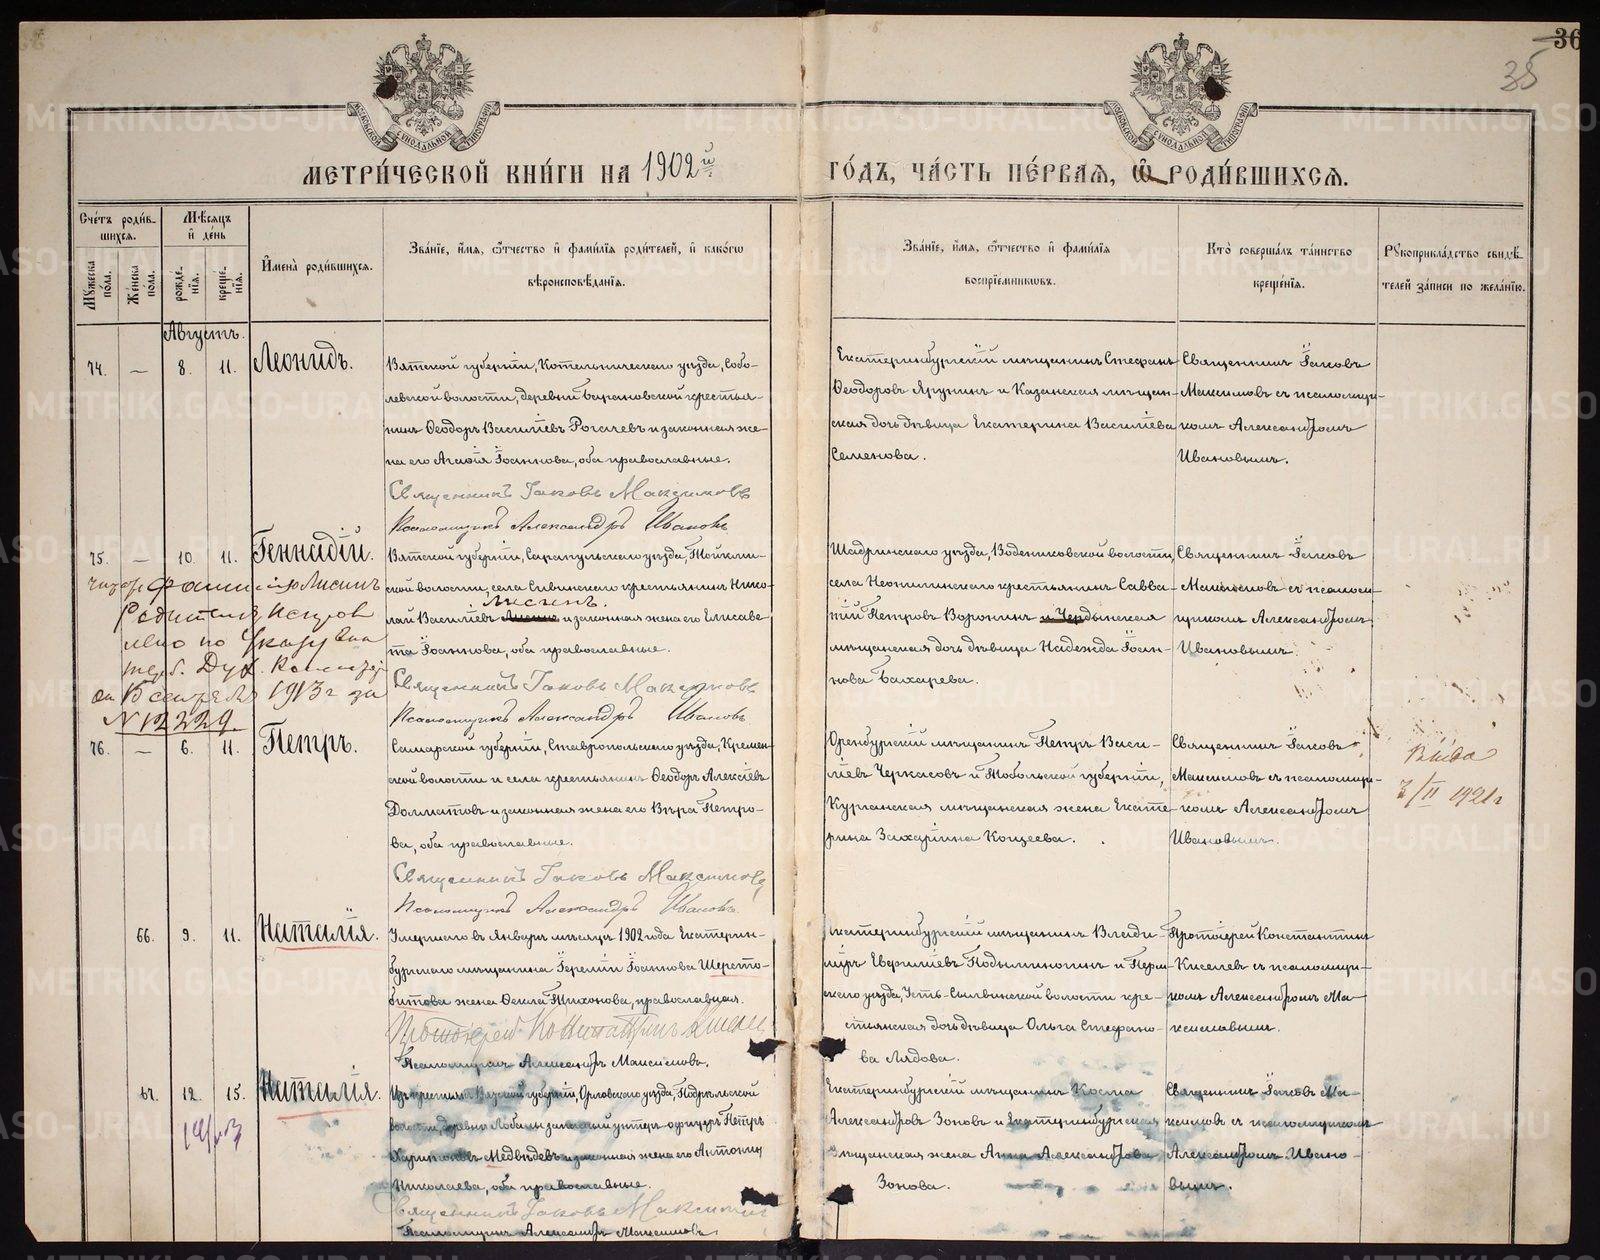 36
35
МЕТРИ́ЧЕСКОЙ КНИ́ГИ НА 1902й ГО́ДЪ, ЧА́СТЬ ПЕ́РВАѦ, Ѿ РОДИ́ВШИХСѦ.
Сче́тъ роди́в-
шихсѧ.
Мѣ́сѧцъ
и҆ де́нь
Му́жеска по́ла.
Же́нска по́ла.
рожде́-
нїѧ.
креще́-
нїѧ.
И҆мена̀ роди́вшихсѧ.
Зва́нїе, и҆́мѧ, ѻ҆́тчество и҆ фами́лїѧ роди́телей, и҆ како́гѡ
вѣроисповѣ́данїѧ.
Зва́нїе, и҆́мѧ, ѻ҆́тчество и҆ фами́лїѧ
воспрїе́мникѡвъ.
Кто̀ соверша́лъ та́инство
креще́нїѧ.
Рꙋкоприкла́дство свидѣ́-
телей за́писи по жела́нїю.
Августъ.
74. — 8. 11. Леонидъ.
Вятской губерніи, Котельническаго уѣзда, Собо-
левской волости, деревни Барановской крестья-
нинъ Ѳеодоръ Василіевъ Рогачевъ и законная же-
на его Агнія Іоаннова, оба православные.
Священникъ Іаковъ Максимовъ
Псаломщикъ Александръ Ивановъ
Екатеринбургскій мѣщанинъ Стефанъ
Ѳеодоровъ Ягунинъ и Казанская мѣщан-
ская дочь дѣвица Екатерина Василіева
Семенова.
Священникъ Іаковъ
Максимовъ съ псаломщи-
комъ Александромъ
Ивановымъ.
75. — 10. 11. Геннадій.
Вятской губерніи, Сарапульскаго уѣзда,
ской волости, села Сивинскаго крестьянинъ Нико-
Лисинъ.
лай Василіевъ и законная жена его Елисаве-
та Іоаннова, оба православные.
Священникъ Іаковъ Максимовъ
Псаломщикъ Александръ Ивановъ
фамилію Лисинъ
Родителя, исправ
лено по Указу Ека
тер. Дух. Консист
отъ 15 сентября 1913 г за
№ 12229.
Шадринскаго уѣзда, Водениковской волости,
села крестьянинъ Савва-
тій Петровъ Воронинъ и Чердынская
мѣщанская дочь дѣвица Надежда Іоан-
нова Бахарева.
Священникъ Іаковъ
Максимовъ съ псалом-
щикомъ Александромъ
Ивановымъ.
76. — 6. 11. Петръ.
Самарской губерніи, Ставропольскаго уѣзда, Кремен-
ской волости и села крестьянинъ Ѳеодоръ Алексіевъ
Долматовъ и законная жена его Вѣра Петро-
ва, оба православные.
Священникъ Іаковъ Максимовъ
Псаломщикъ Александръ Ивановъ
Оренбургскій мѣщанинъ Петръ Васи-
ліевъ Черкасовъ и Тобольской губерніи,
Курганская мѣщанская жена Екате-
рина Захаріина Кощеева.
Священникъ Іаковъ
Максимовъ съ псаломщи-
комъ Александромъ
Ивановымъ.
/II 1921 г
66. 9. 11. Наталія.
Умершаго въ Январѣ мѣсяцѣ 1902 года Екатерин-
бургскаго мѣщанина Іереміи Іоаннова Шерсто-
битова жена Ѳекла Тихонова, православная.
Протоіерей Константинъ
Псаломщикъ Александръ Максимовъ.
Екатеринбургскій мѣщанинъ Влади-
міръ Подыминогинъ и Перм-
скаго уѣзда, Усть-Сылвинской волости кре-
стьянская дочь дѣвица Ольга Стефано-
ва Лядова.
Протоіерей Константинъ
Киселевъ съ псаломщи-
комъ Александромъ Ма-
ксимовымъ.
67. 12. 15. Наталія.
Вятской губерніи, Орловскаго уѣзда, Подрельской
волости, деревни запасный унтеръ-офицеръ Петръ
Харитоновъ Медвѣдевъ и законная жена его Антонина
Николаева, оба православные.
Священникъ Іаковъ Максимовъ
Псаломщикъ Александръ Максимовъ.
Екатеринбургскій мѣщанинъ Косма
Александровъ Зоновъ и Екатеринбургская
мѣщанская жена Анна Александрова
Зонова.
Священникъ Іаковъ Ма-
ксимовъ съ псаломщикомъ
Александромъ Ивано-
вымъ.
METRIKI.GASO-URAL.RU